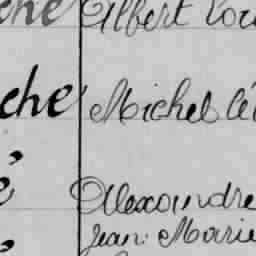 che Albert Lou
che Michel Cé
é Alexandre
Jean. Marie